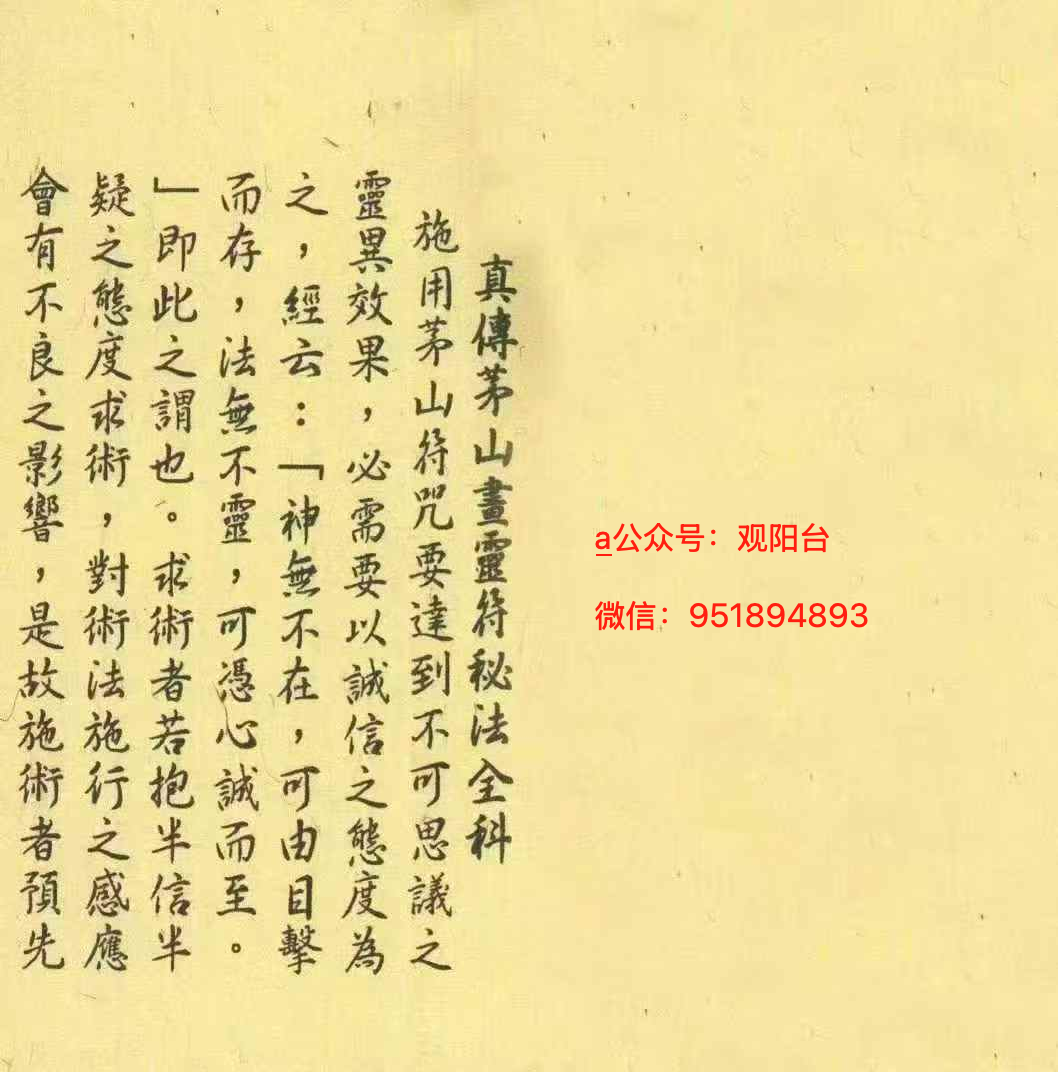 真傳茅山畫靈符秘法全科
施用茅山符咒要達到不可思議之
靈異效果，必需要以誠信之態度為
之，經云：「神無不在，可由目擊
而存，法無不靈，可憑心誠而至。
」即此之謂也。求術者若抱半信半
疑之態度求術，對術法施行之感應
會有不良之影響，是故施術者預先
a公众号：观阳台
微信：951894893